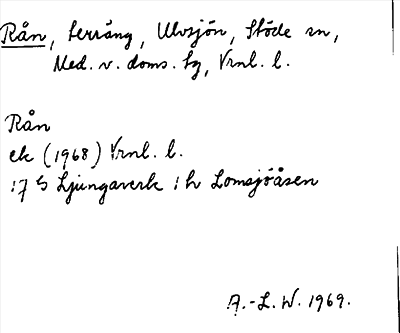 Rån, terräng, Ulvsjön, Stöde sn,
Med. v. doms. tg, Vrnl. l.
Rån
ek (1968) Vrnl. l.
:7 S Ljungaverk :h Lomsjöåsen
A.-L. W. 1969.